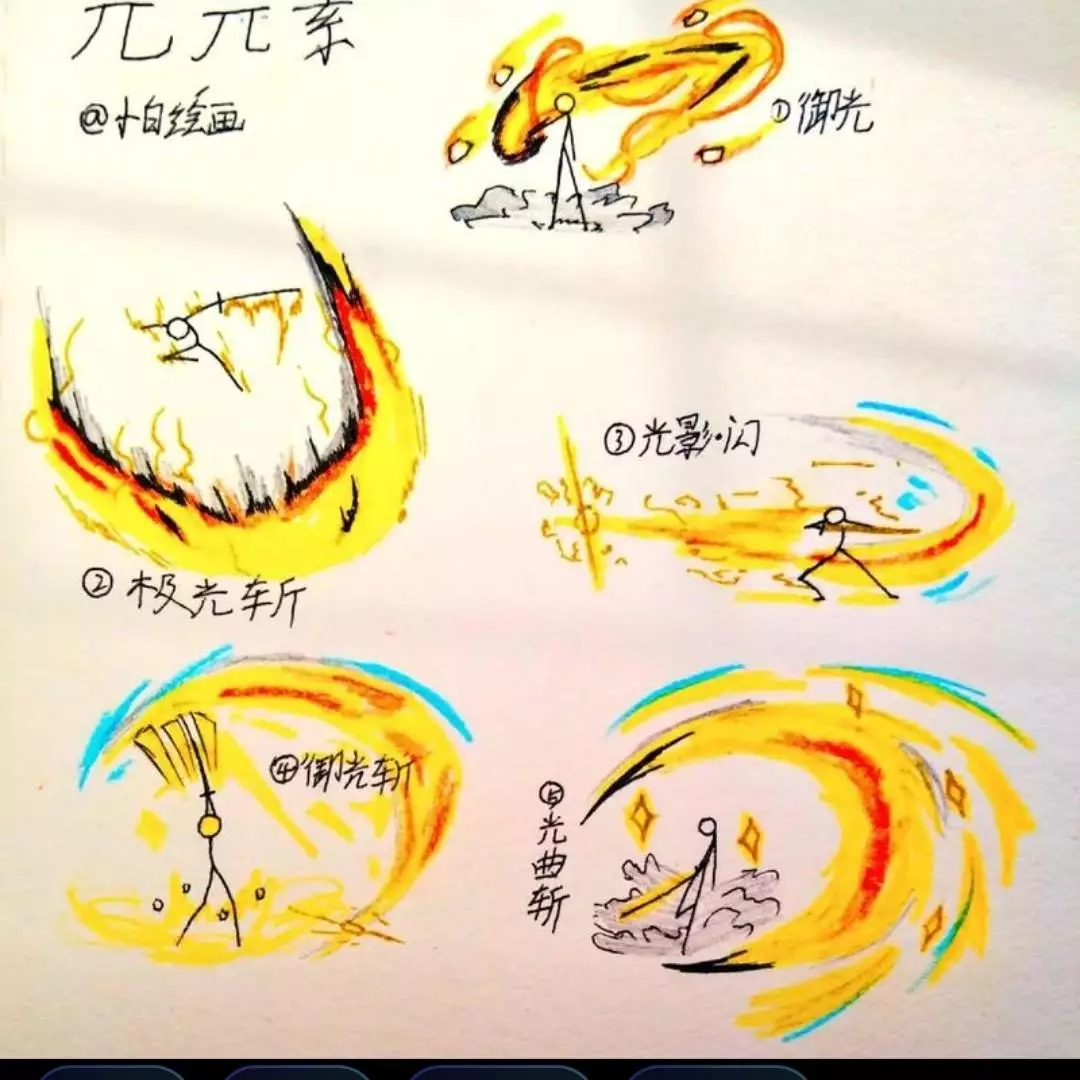 光元素
@小白绘画
①御光
②极光斩
③光影·闪
④御光斩
⑤光曲斩